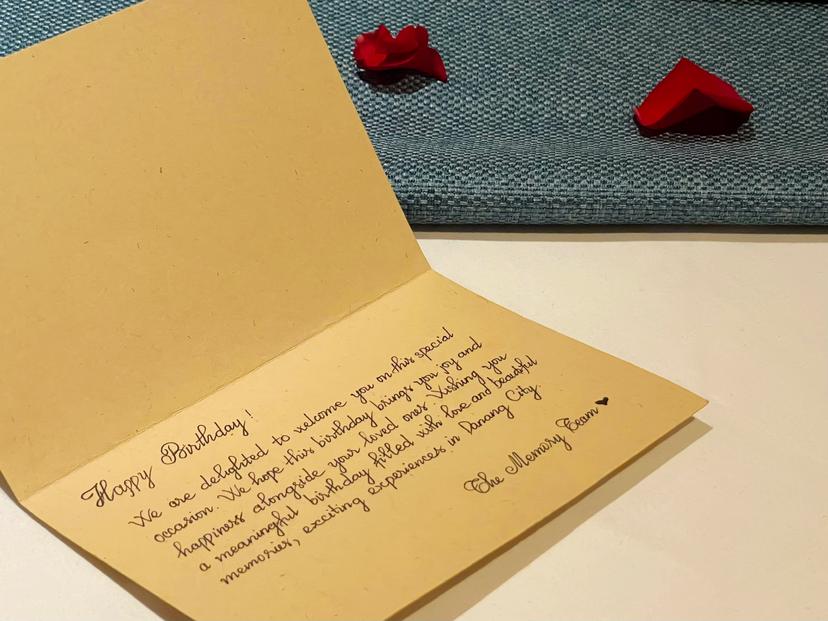 Happy Birthday!
We are delighted to welcome you on this special
occasion. We hope this birthday brings you joy and
happiness alongside your loved ones. Wishing you
a meaningful birthday filled with love and beautiful
memories, exciting experiences in Danang City.
The Memory Team ♥